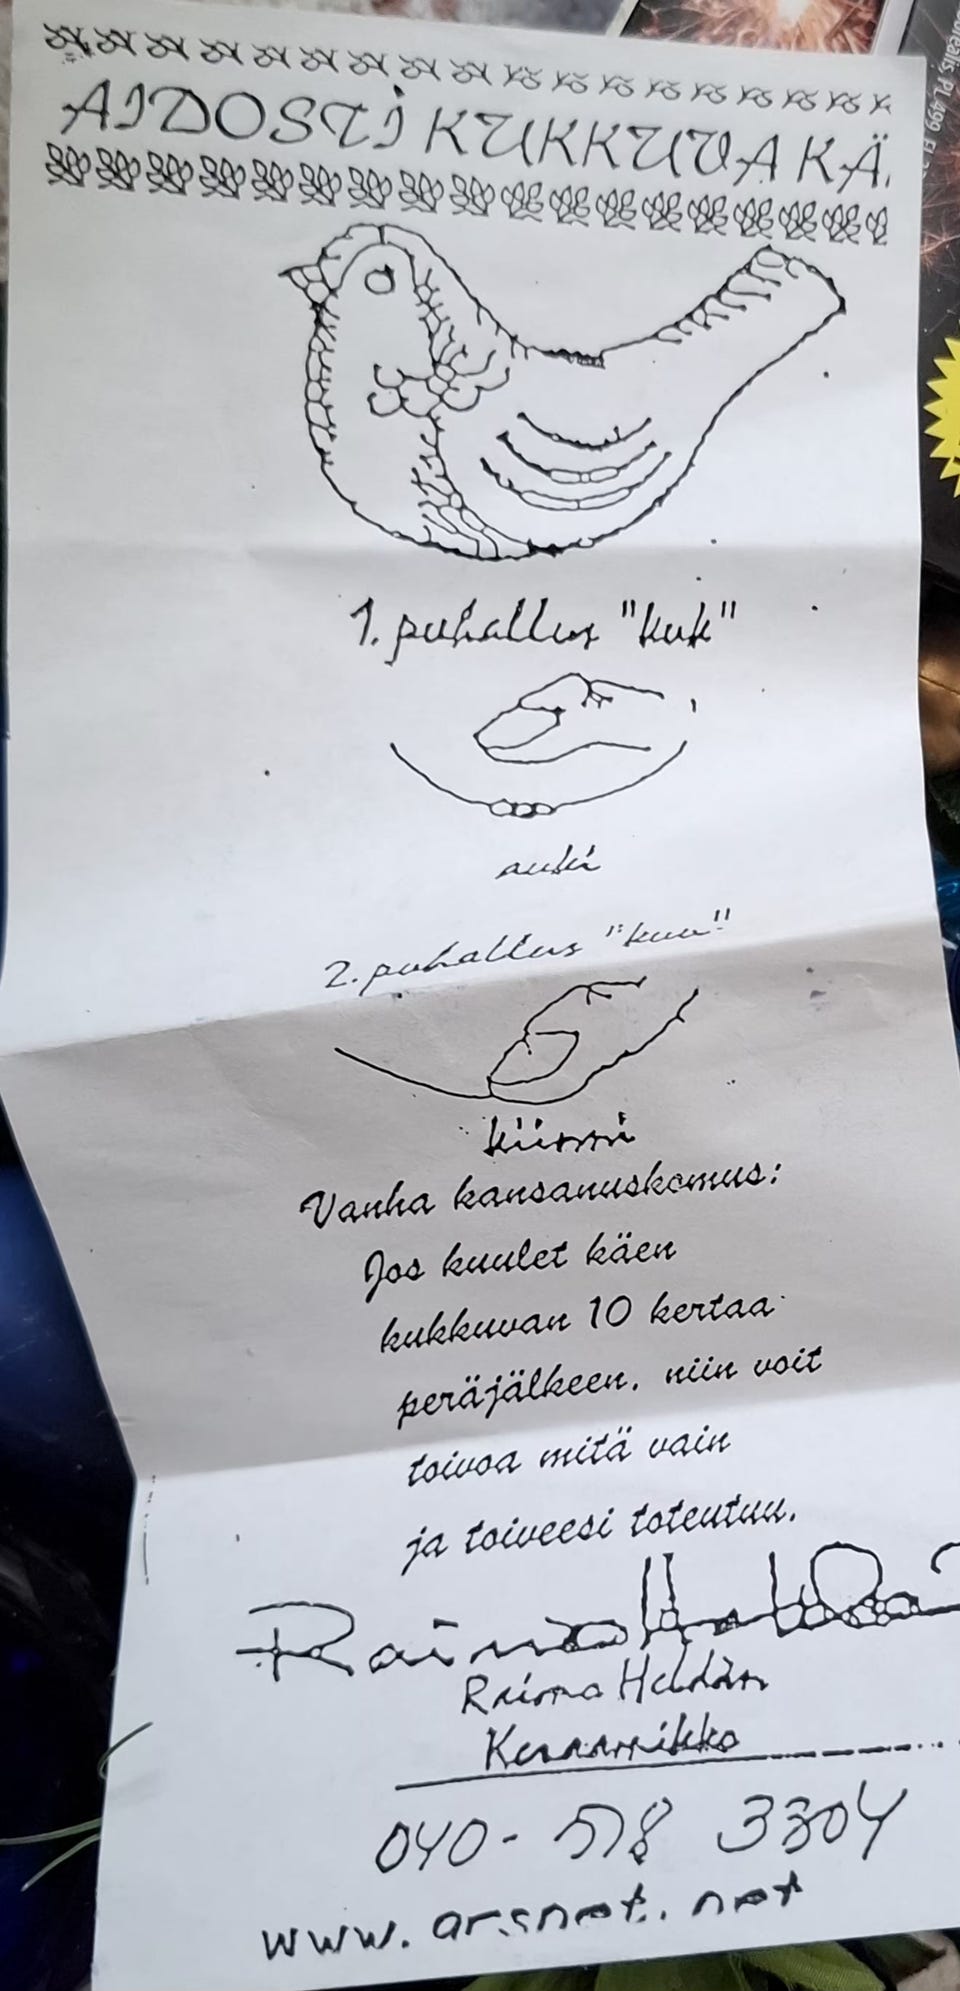 AIDOSTI KUKKUVA KÄ
1. puhallus "kuk"
auki
2. puhallus "kuu"
kiinni
Vanha kansanuskomus:
Jos kuulet käen
kukkuvan 10 kertaa
peräjälkeen, niin voit
toivoa mitä vain
ja toiveesi toteutuu.
Raimo
Raimo
Keraamikko
040-518 3304
www.arsnet.net